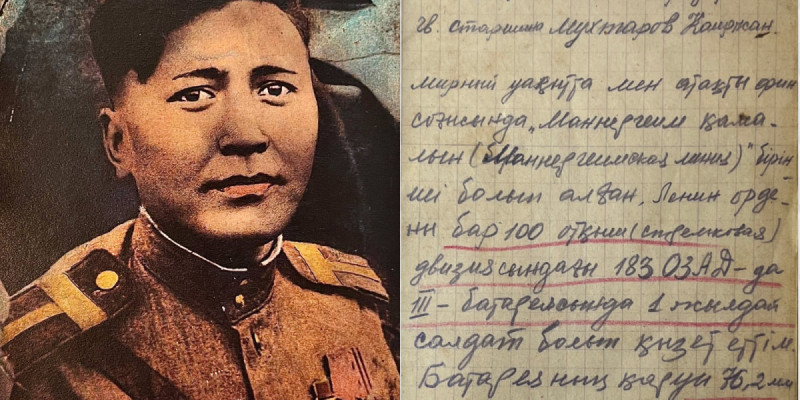 гв. старшина Мухтаров Каиржан.
мирный уақытта мен атақты фин
соғысында „Маннергеим қама-
лын (Маннергеимская линия)" бірін
ші болып алған, Ленин орде-
ні бар 100 отқыш (стрелковая)
двизиясындағы 183 ОЗАД-да
III - батареясында 1 жылдай
салдат болып қызет еттім.
Батареяның қаруы 76,2 мм